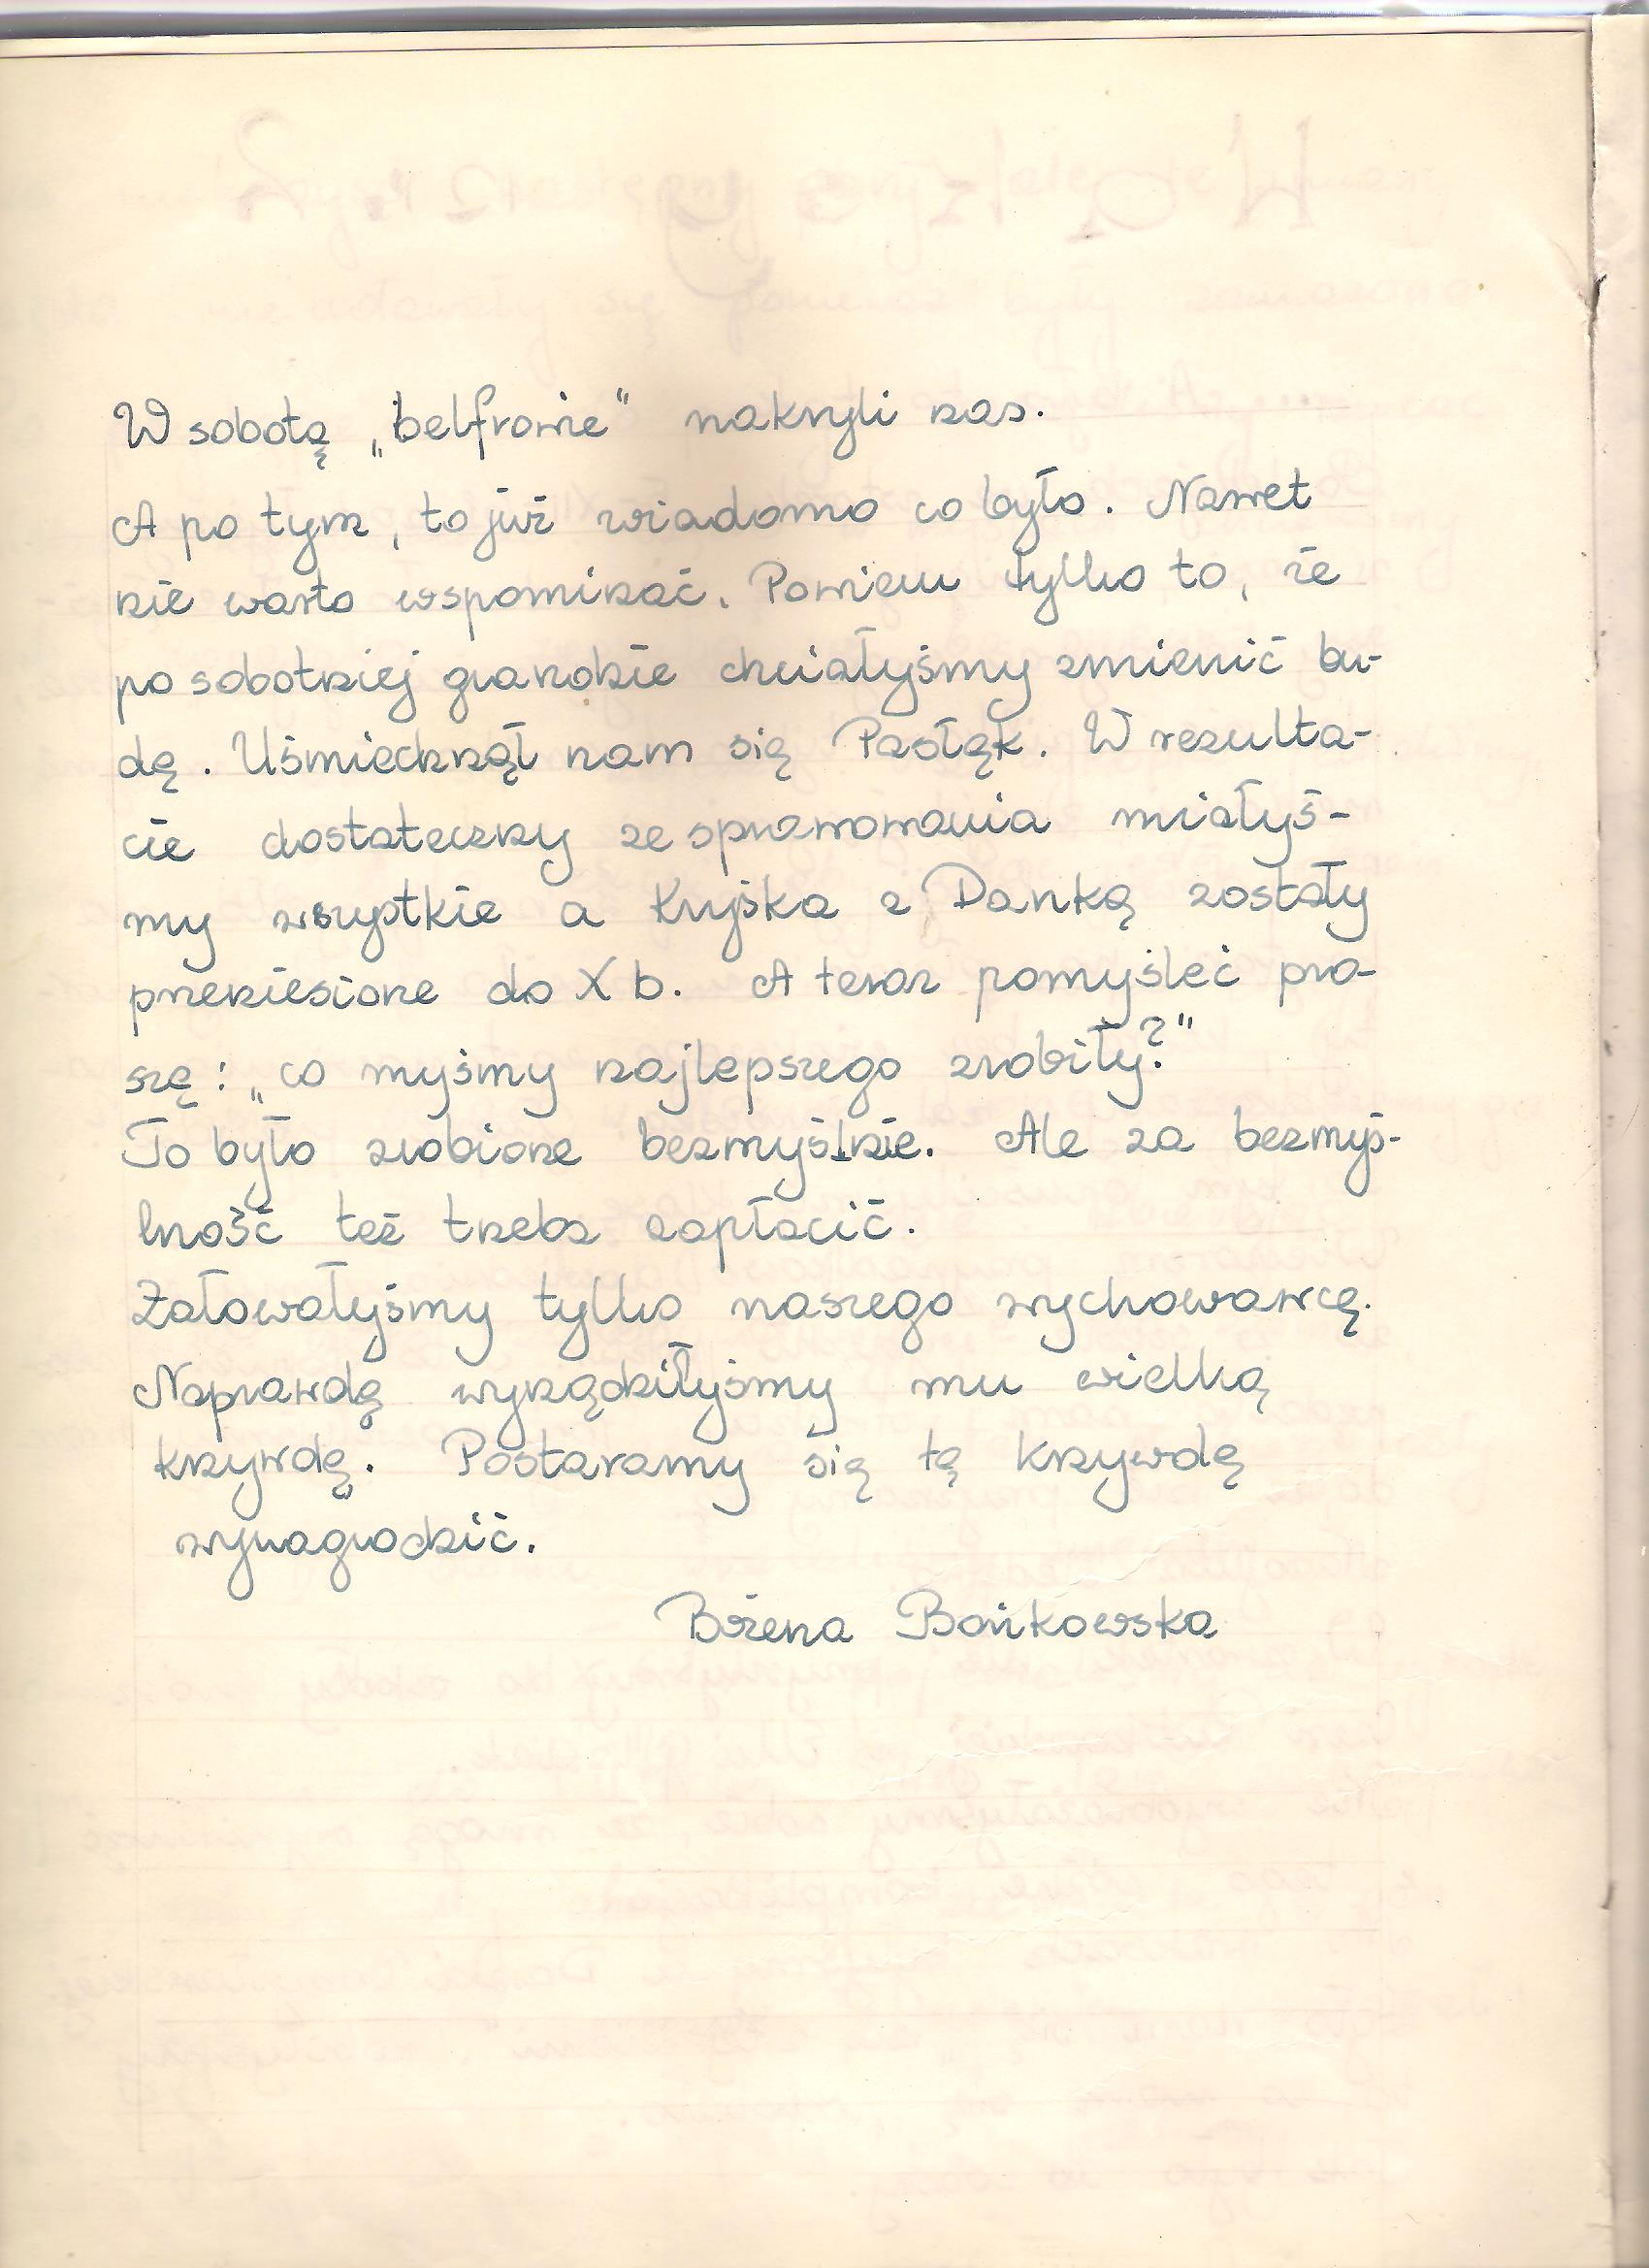 W sobotę „belfrowie" nakryli nas.
A po tym, to już wiadomo co było. Nawet
nie warto wspominać. Powiem tylko to, że
po sobotniej grandzie chciałyśmy zmienić bu-
dę. Uśmiechnął nam się Pasłęk. W rezulta-
cie dostateczny ze sprawowania miałyś-
my wszystkie a Kryśka z Danką zostały
przeniesione do X b. A teraz pomyśleć pro-
szę: „co myśmy najlepszego zrobiły?"
To było zrobione bezmyślnie. Ale za bezmyś-
lność też trzeba zapłacić.
Żałowałyśmy tylko naszego wychowawcę.
Naprawdę wyrządziłyśmy mu wielką
krzywdę. Postaramy się tę krzywdę
wynagrodzić.
Bożena Bańkowska